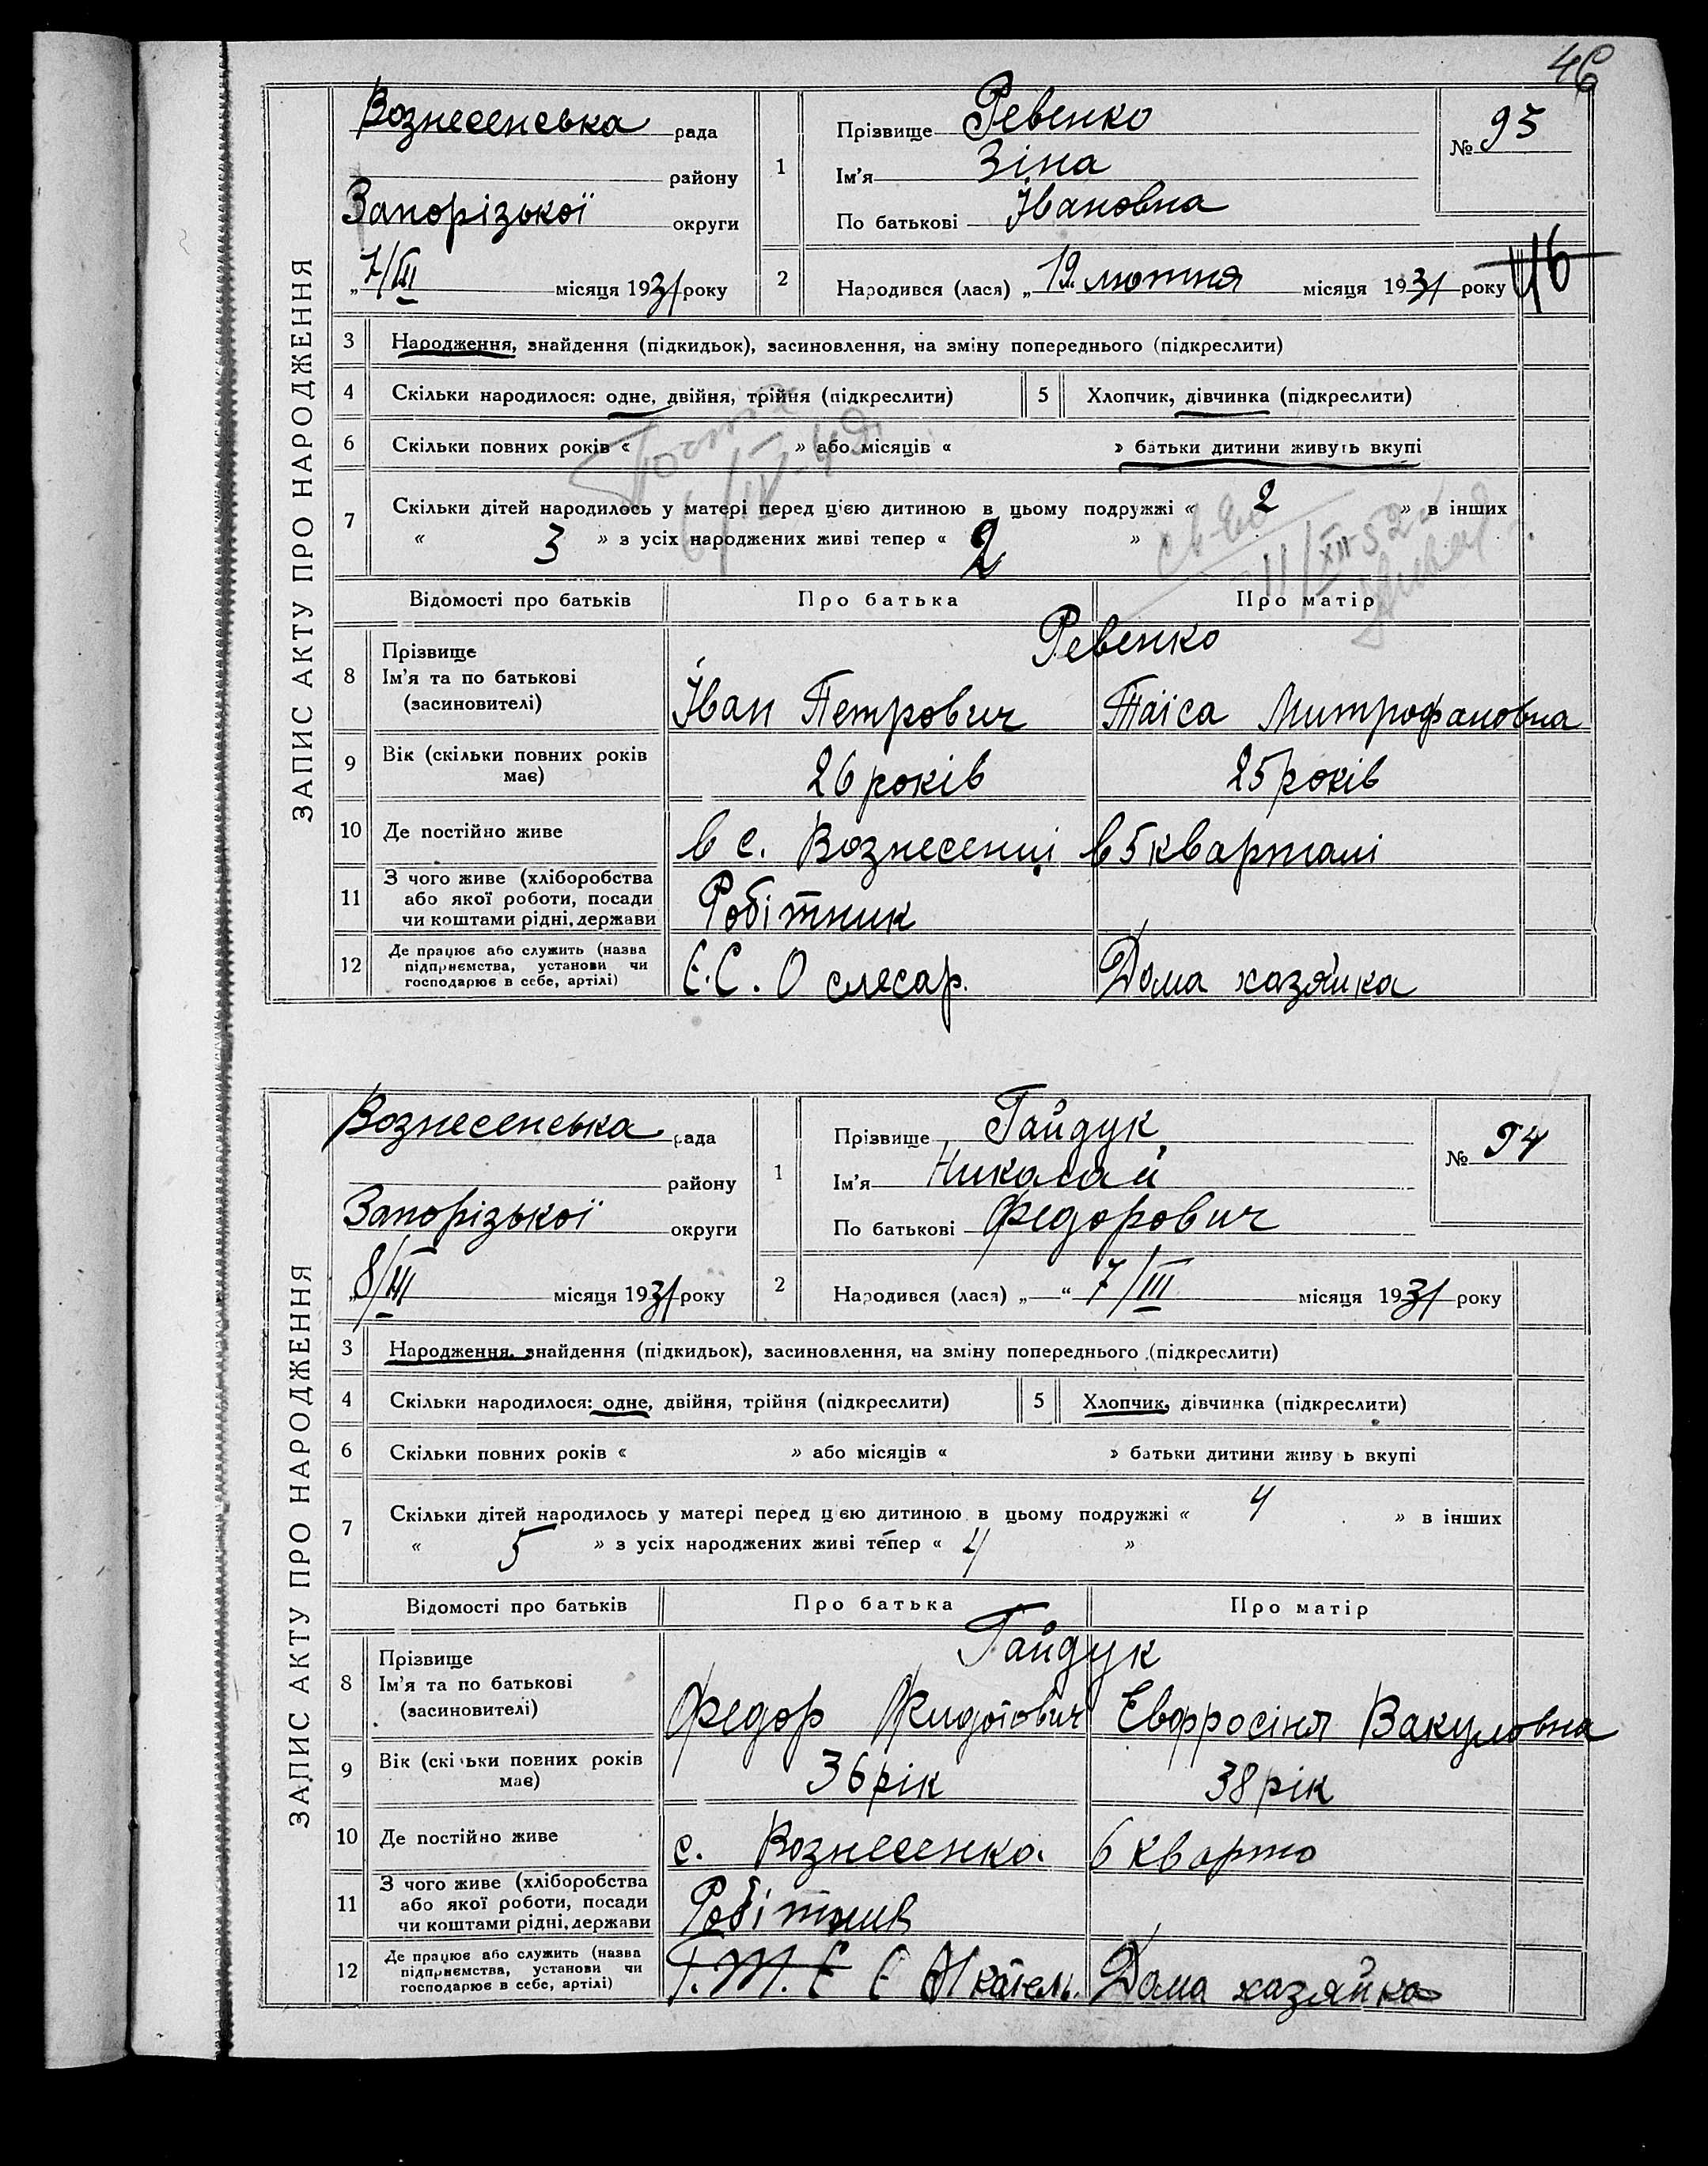 46
ЗАПИС АКТУ ПРО НАРОДЖЕННЯ
Вознесенська рада
району
Запорізької округи
„7/III місяця 1931 року
1 Прізвище Ревенко
Ім'я Зіна
По батькові Івановна
№ 95
2 Народився (лася) „19. лютня місяця 1931 року
46
3 Народження, знайдення (підкидьок), засиновлення, на зміну попереднього (підкреслити)
4 Скільки народилося: одне, двійня, трійня (підкреслити) 5 Хлопчик, дівчинка (підкреслити)
6 Скільки повних років « » або місяців « » батьки дитини живуть вкупі
6/IV-49
7 Скільки дітей народилось у матері перед цією дитиною в цьому подружжі « 2 » в інших
« 3 » з усіх народжених живі тепер « 2 »
11/XII-52
Відомості про батьків Про батька Про матір
Ревенко
8 Прізвище
Ім'я та по батькові
(засиновителі)
Іван Петрович Таїса Митрофановна
9 Вік (скільки повних років
має)
26 років 25 років
10 Де постійно живе в с. Вознесенці в 5 кварталі
11 З чого живе (хліборобства
або якої роботи, посади
чи коштами рідні, держави
Робітник
12 Де працює або служить (назва
підприємства, установи чи
господарює в себе, артілі)
Є.С.О слесар. Дома хазяйка
ЗАПИС АКТУ ПРО НАРОДЖЕННЯ
Вознесенська рада
району
Запорізької округи
„8/III місяця 1931 року
1 Прізвище Гайдук
Ім'я Николай
По батькові Федорович
№ 94
2 Народився (лася) „—“ 7/III місяця 1931 року
3 Народження, знайдення (підкидьок), засиновлення, на зміну попереднього (підкреслити)
4 Скільки народилося: одне, двійня, трійня (підкреслити) 5 Хлопчик, дівчинка (підкреслити)
6 Скільки повних років « » або місяців « » батьки дитини живу ь вкупі
7 Скільки дітей народилось у матері перед цією дитиною в цьому подружжі « 4 » в інших
« 5 » з усіх народжених живі тепер « 4 »
Відомості про батьків Про батька Про матір
Гайдук
8 Прізвище
Ім'я та по батькові
(засиновителі)
Федор Евфросіня Вакуловна
9 Вік (скільки повних років
має)
36 рік 38 рік
10 Де постійно живе с. Вознесенка. 6 кварта
11 З чого живе (хліборобства
або якої роботи, посади
чи коштами рідні, держави
Робітник
12 Де працює або служить (назва
підприємства, установи чи
господарює в себе, артілі)
Дома хазяйка